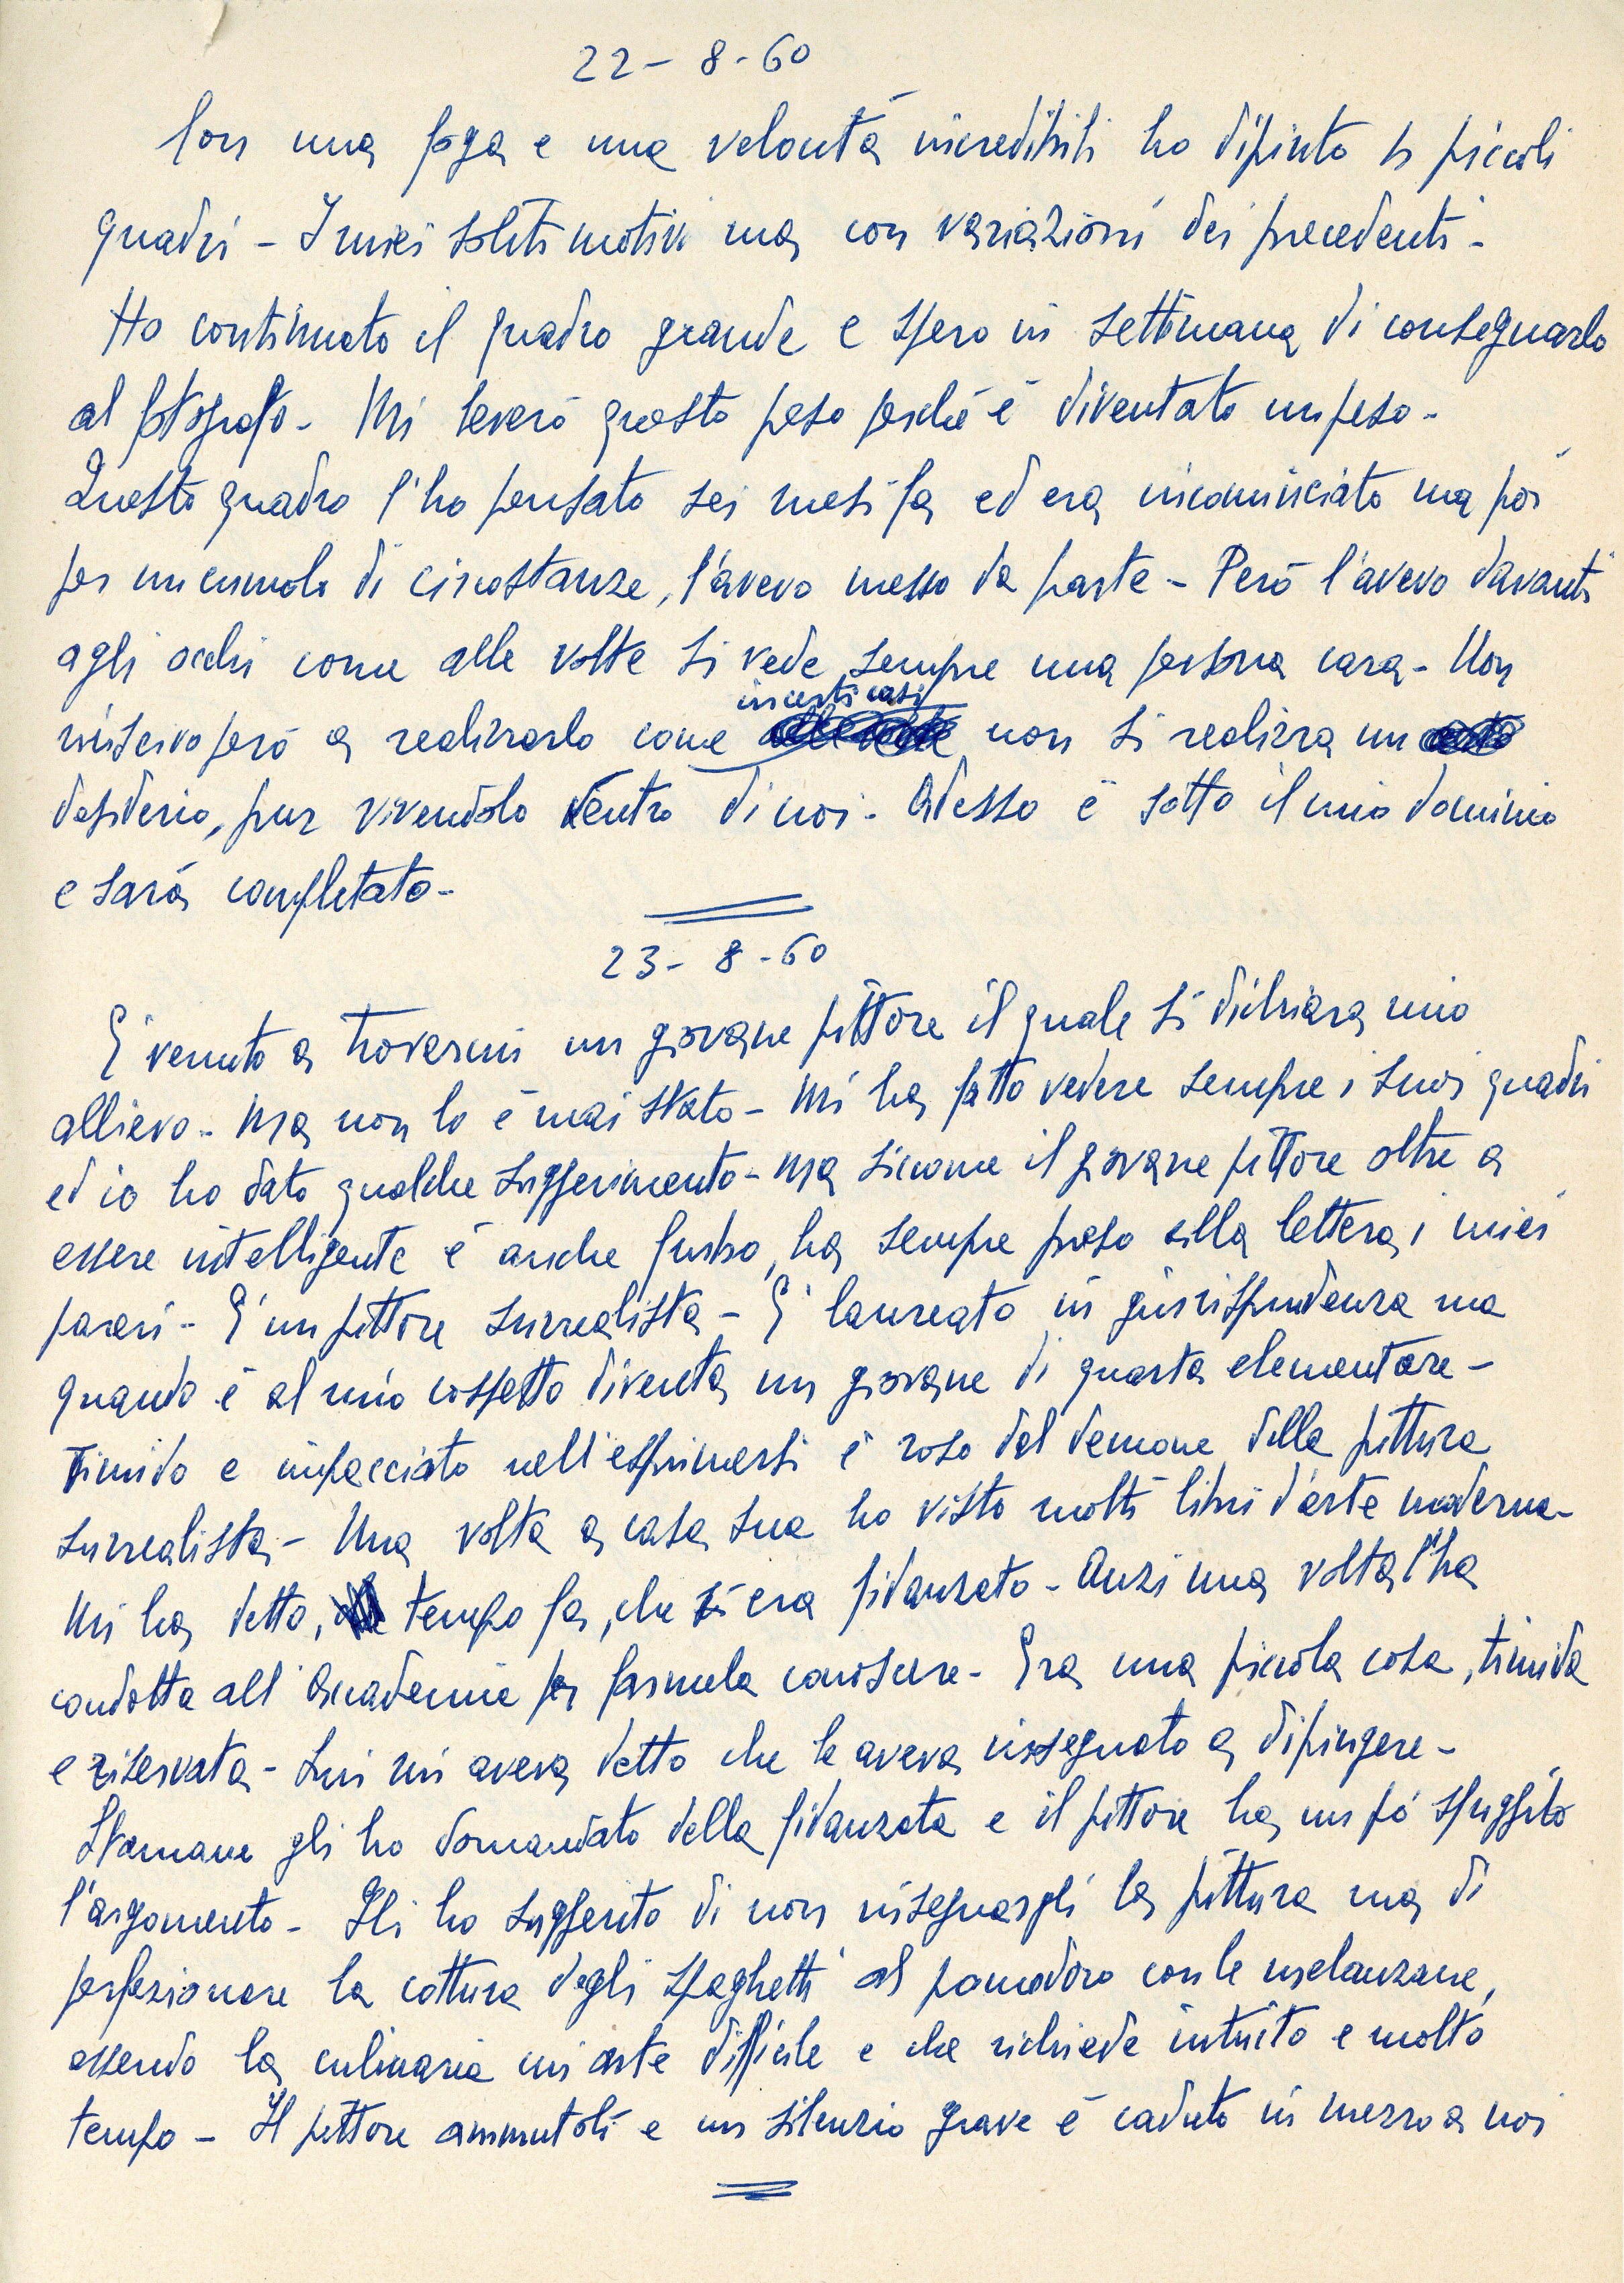 22 - 8 - 60
Con una foga e una velocità incredibili ho dipinto piccoli
quadri - I miei soliti motivi ma con variazioni dei precedenti -
Ho continuato il quadro grande e spero in settimana di consegnarlo
al fotografo - Mi leverò questo peso perché è diventato un peso -
Questo quadro l'ho pensato sei mesi fa ed era incominciato ma poi
per un cumolo di circostanze, l'avevo messo da parte - Però l'avevo davanti
agli occhi come alle volte si vede sempre una persona cara - Non
riuscivo però a realizzarlo come in certi casi non si realizza un
desiderio, pur vivendolo dentro di noi - Adesso è sotto il mio dominio
e sarà completato -
23 - 8 - 60
E' venuto a trovarmi un giovane pittore il quale si dichiara mio
allievo - Ma non lo è mai stato - Mi ha fatto vedere sempre i suoi quadri
ed io ho dato qualche suggerimento - Ma siccome il giovane pittore oltre a
essere intelligente è anche furbo, ha sempre preso alla lettera i miei
pareri - E' un pittore surrealista - E' laureato in giurisprudenza ma
quando è al mio cospetto diventa un giovane di quarta elementare -
Timido e impacciato nell'esprimersi è roso dal demone della pittura
surrealista - Una volta a casa sua ho visto molti libri d'arte moderna -
Mi ha detto, tempo fa, che si era fidanzato - Anzi una volta l'ha
condotta all'Accademia per farmela conoscere - Era una piccola cosa, timida
e riservata - Lui mi aveva detto che le aveva insegnato a dipingere -
Stamane gli ho domandato della fidanzata e il pittore ha un pò sfuggito
l'argomento - Gli ho suggerito di non insegnargli la pittura ma di
perfezionare la cottura degli spaghetti al pomodoro con le melanzane,
essendo la culinaria un arte difficile e che richiede intuito e molto
tempo - Il pittore ammutolì e un silenzio grave è caduto in mezzo a noi